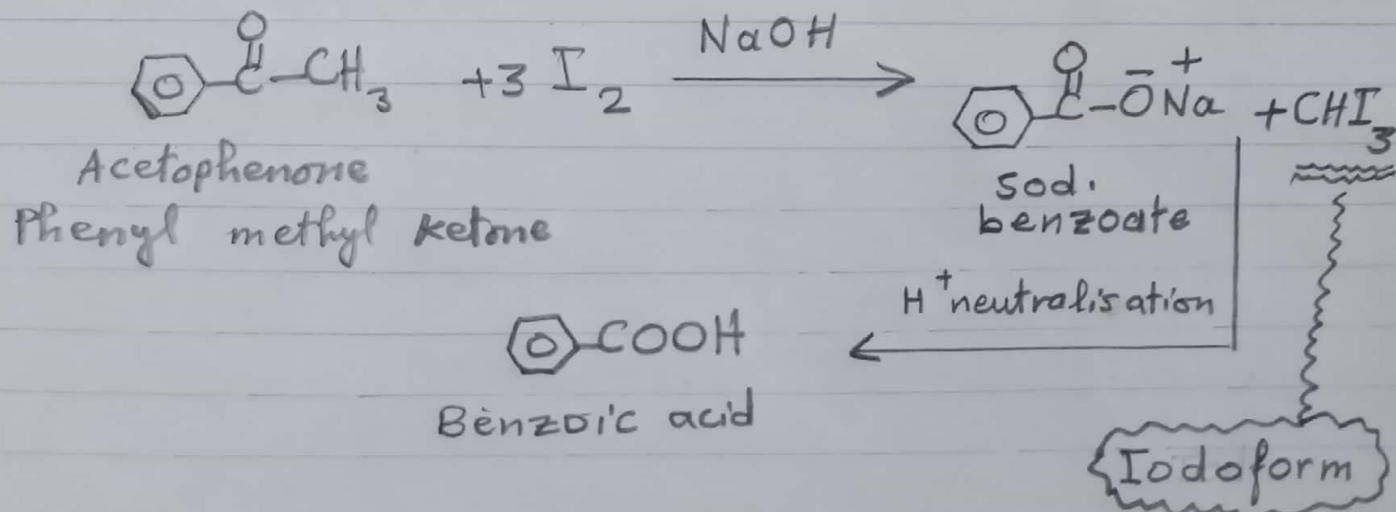 O O
C-CH3 +3 I2 NaOH C-O- Na+ + CHI3
Acetophenone
Phenyl methyl ketone
sod.
benzoate
H+ neutralisation
COOH
Benzoic acid
Iodoform